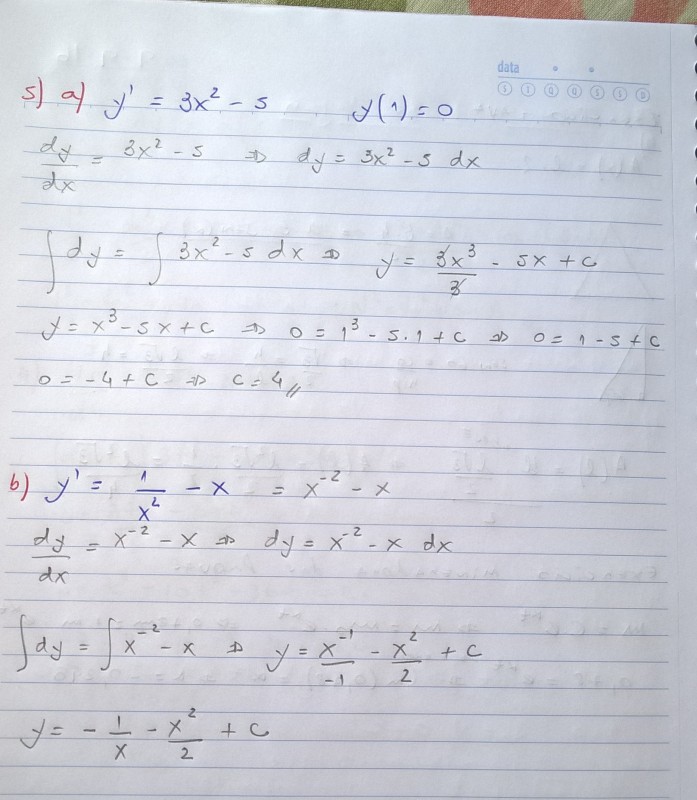 data
S T Q Q S S D
5) a) y' = 3x² - 5 y(1) = 0
dy/dx = 3x² - 5 ⇒ dy = 3x² - 5 dx
∫ dy = ∫ 3x² - 5 dx ⇒ y = 3x³/3 - 5x + c
y = x³ - 5x + c ⇒ 0 = 1³ - 5.1 + c ⇒ 0 = 1 - 5 + c
0 = -4 + c ⇒ c = 4 //
b) y' = 1/x² - x = x⁻² - x
dy/dx = x⁻² - x ⇒ dy = x⁻² - x dx
∫ dy = ∫ x⁻² - x ⇒ y = x⁻¹/-1 - x²/2 + c
y = - 1/x - x²/2 + c